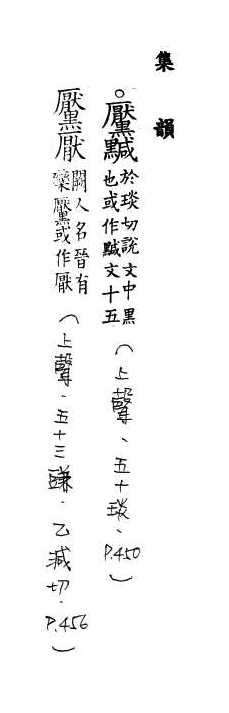 集韻
。黶黬於琰切說文中黑
也或作黬文十五(上聲、五十琰、P.450)
黶厭闕人名晉有
欒黶或作厭(上聲.五十三豏.乙減切.P.456)